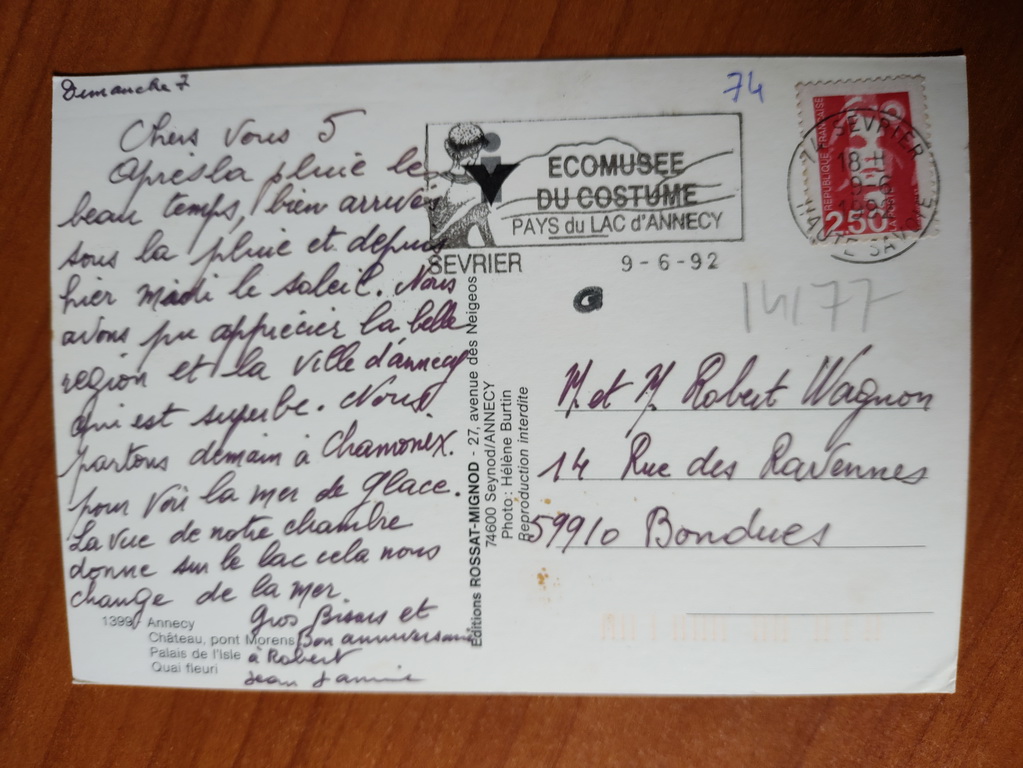 Dimanche 7
Chers Vous 5
Après la pluie le
beau temps, bien arrivés
sous la pluie et depuis
hier midi le soleil. Nous
avons pu apprécier la belle
région et la ville d'annecy
qui est superbe. Nous
partons demain à Chamonix.
pour voir la mer de glace.
La vue de notre chambre
donne sur le lac cela nous
change de la mer.
Gros Bisous et
Bon anniversaire
à Robert
Jean Janine
1399 Annecy
Château, pont Morens
Palais de l'Isle
Quai fleuri
Editions ROSSAT-MIGNOD - 27, avenue des Neigeos
74600 Seynod/ANNECY
Photo : Hélène Burtin
Reproduction interdite
74
ECOMUSEE
DU COSTUME
PAYS du LAC d'ANNECY
SEVRIER 9-6-92
REPUBLIQUE FRANÇAISE
2,50
74 SEVRIER
18 H
9-6
1992
HAUTE SAVOIE
14177
M. et M. Robert Wagnon
14 Rue des Ravennes
59910 Bondues